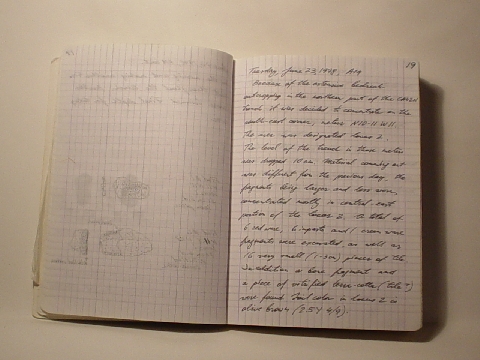 29
Tuesday, June 23, 1998,
Because of the extensive bedrock
outcropping in the northern part of the
trench, it was decided to concentrate on the
south-east corner, meters N10-11 W11.
The area was designated locus 2.
The level of the trench in these meters
was dropped 10 cm. Material coming out
was different from the previous day, the
fragments being larger and less worn,
concentrated mostly in central-east
portion of the locus 2. A total of
6 red ware, 6 impasto and 1 cream ware
fragments were excavated, as well as
16 very small (1-3cm) pieces of tile.
In addition a bone fragment and
a piece of vitrified terra-cotta (tile?)
were found. Soil color in locus 2 is
olive brown (2.5Y 4/4).